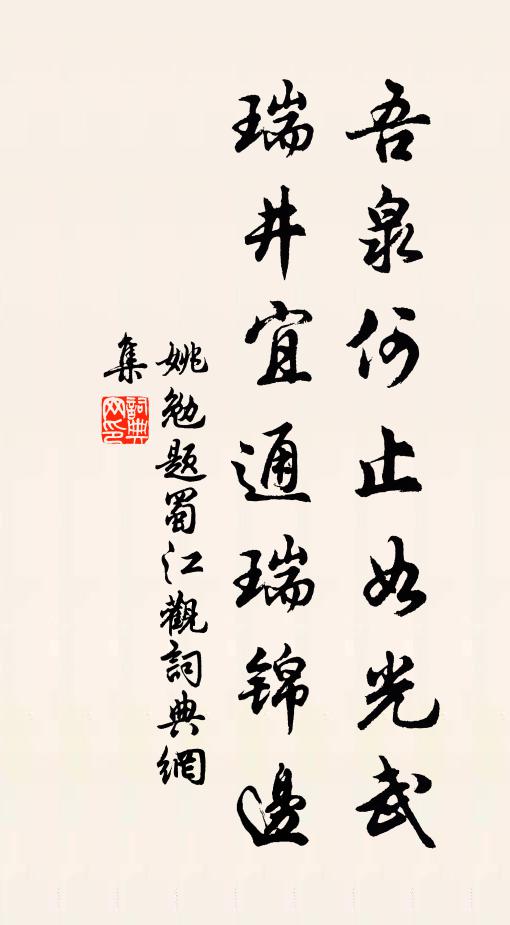 吾泉何止如光武
瑞井宜通瑞錦邊
姚勉題蜀江觀詞典網
集
詞典網印